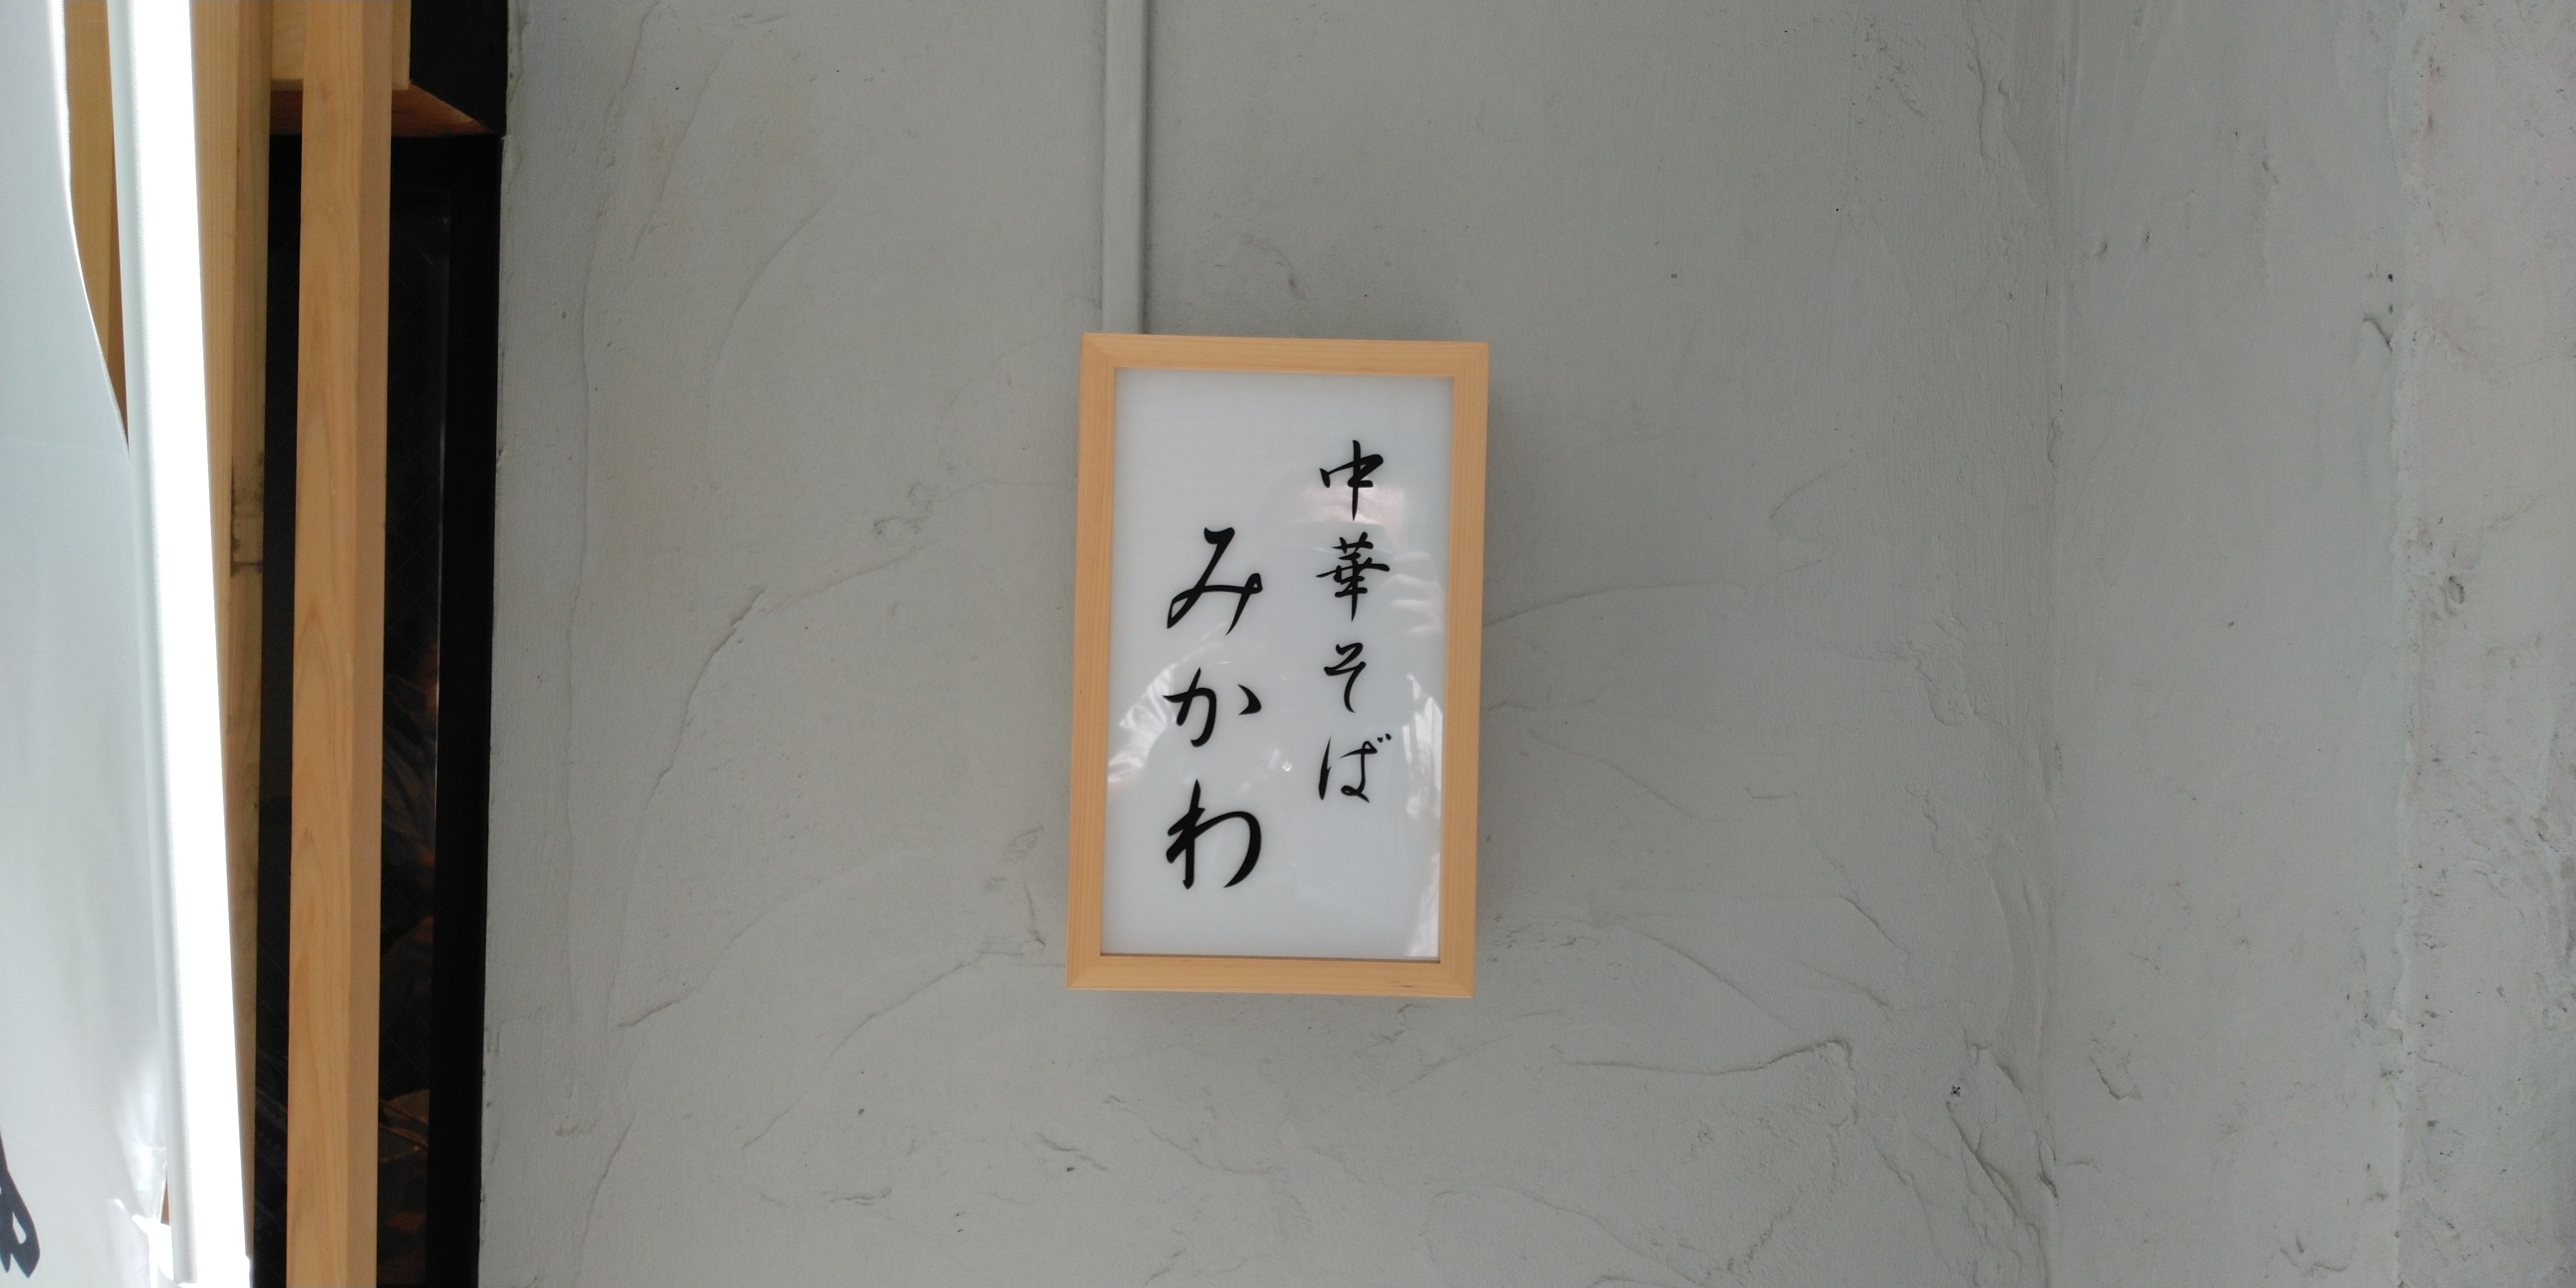 中華そば
みかわ